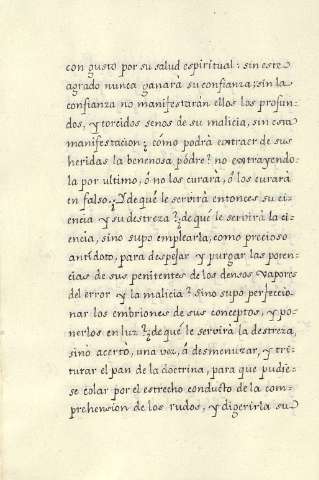 con gusto por su salud espiritual: sin este
agrado nunca ganarà su confianza; sin la
confianza no manifestarán ellos las profun-
dos, y torcidos senos de su malicia, sin esta
manifestacion ¿cómo podrà extraer de sus
heridas la benenosa pòdre? no extrayendo-
la por ultimo, ó no los curarà, ó los curarà
en falso. ¿Y de què le servirà entonces su ci-
encia y su destreza? ¿de què le servirà la ci-
encia, sino supo emplearla, como precioso
antídoto, para despejar y purgar las poten-
cias de sus penitentes de los densos vapores
del error y la malicia? Sino supo perfeccio-
nar los embriones de sus conceptos, y po-
nerlos en luz? ¿de què le servirà la destreza,
sino acertò, una vez, á desmenuzar, y tri-
turar el pan de la doctrina, para que pudie-
se colar por el estrecho conducto de la com-
prehension de los rudos, y digerirla su